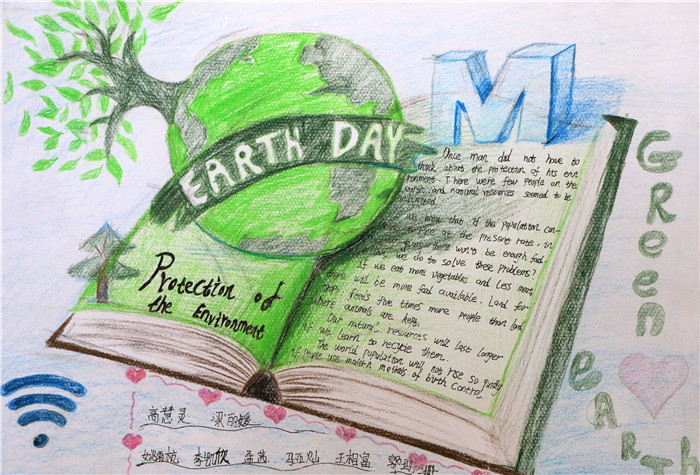 EARTH DAY
M
Protection of
the Environment
Once man did not have to
think about the protection of his env
ronment. There were few people on the
and natural resources seemed to be
unlimited.
we know that if the population con-
to rise at the present rate, in
there won't be enough food.
we do to solve these problems?
If we eat more vegetables and less meat,
there will be more food available. Land for
crops feeds five times more people than land
where animals are kept.
Our natural resources will last longer
if we learn to recycle them.
The world population will not rise so quickly
if people use modern methods of birth control.
Green
eARTH
高慧灵
孟茜 王相富